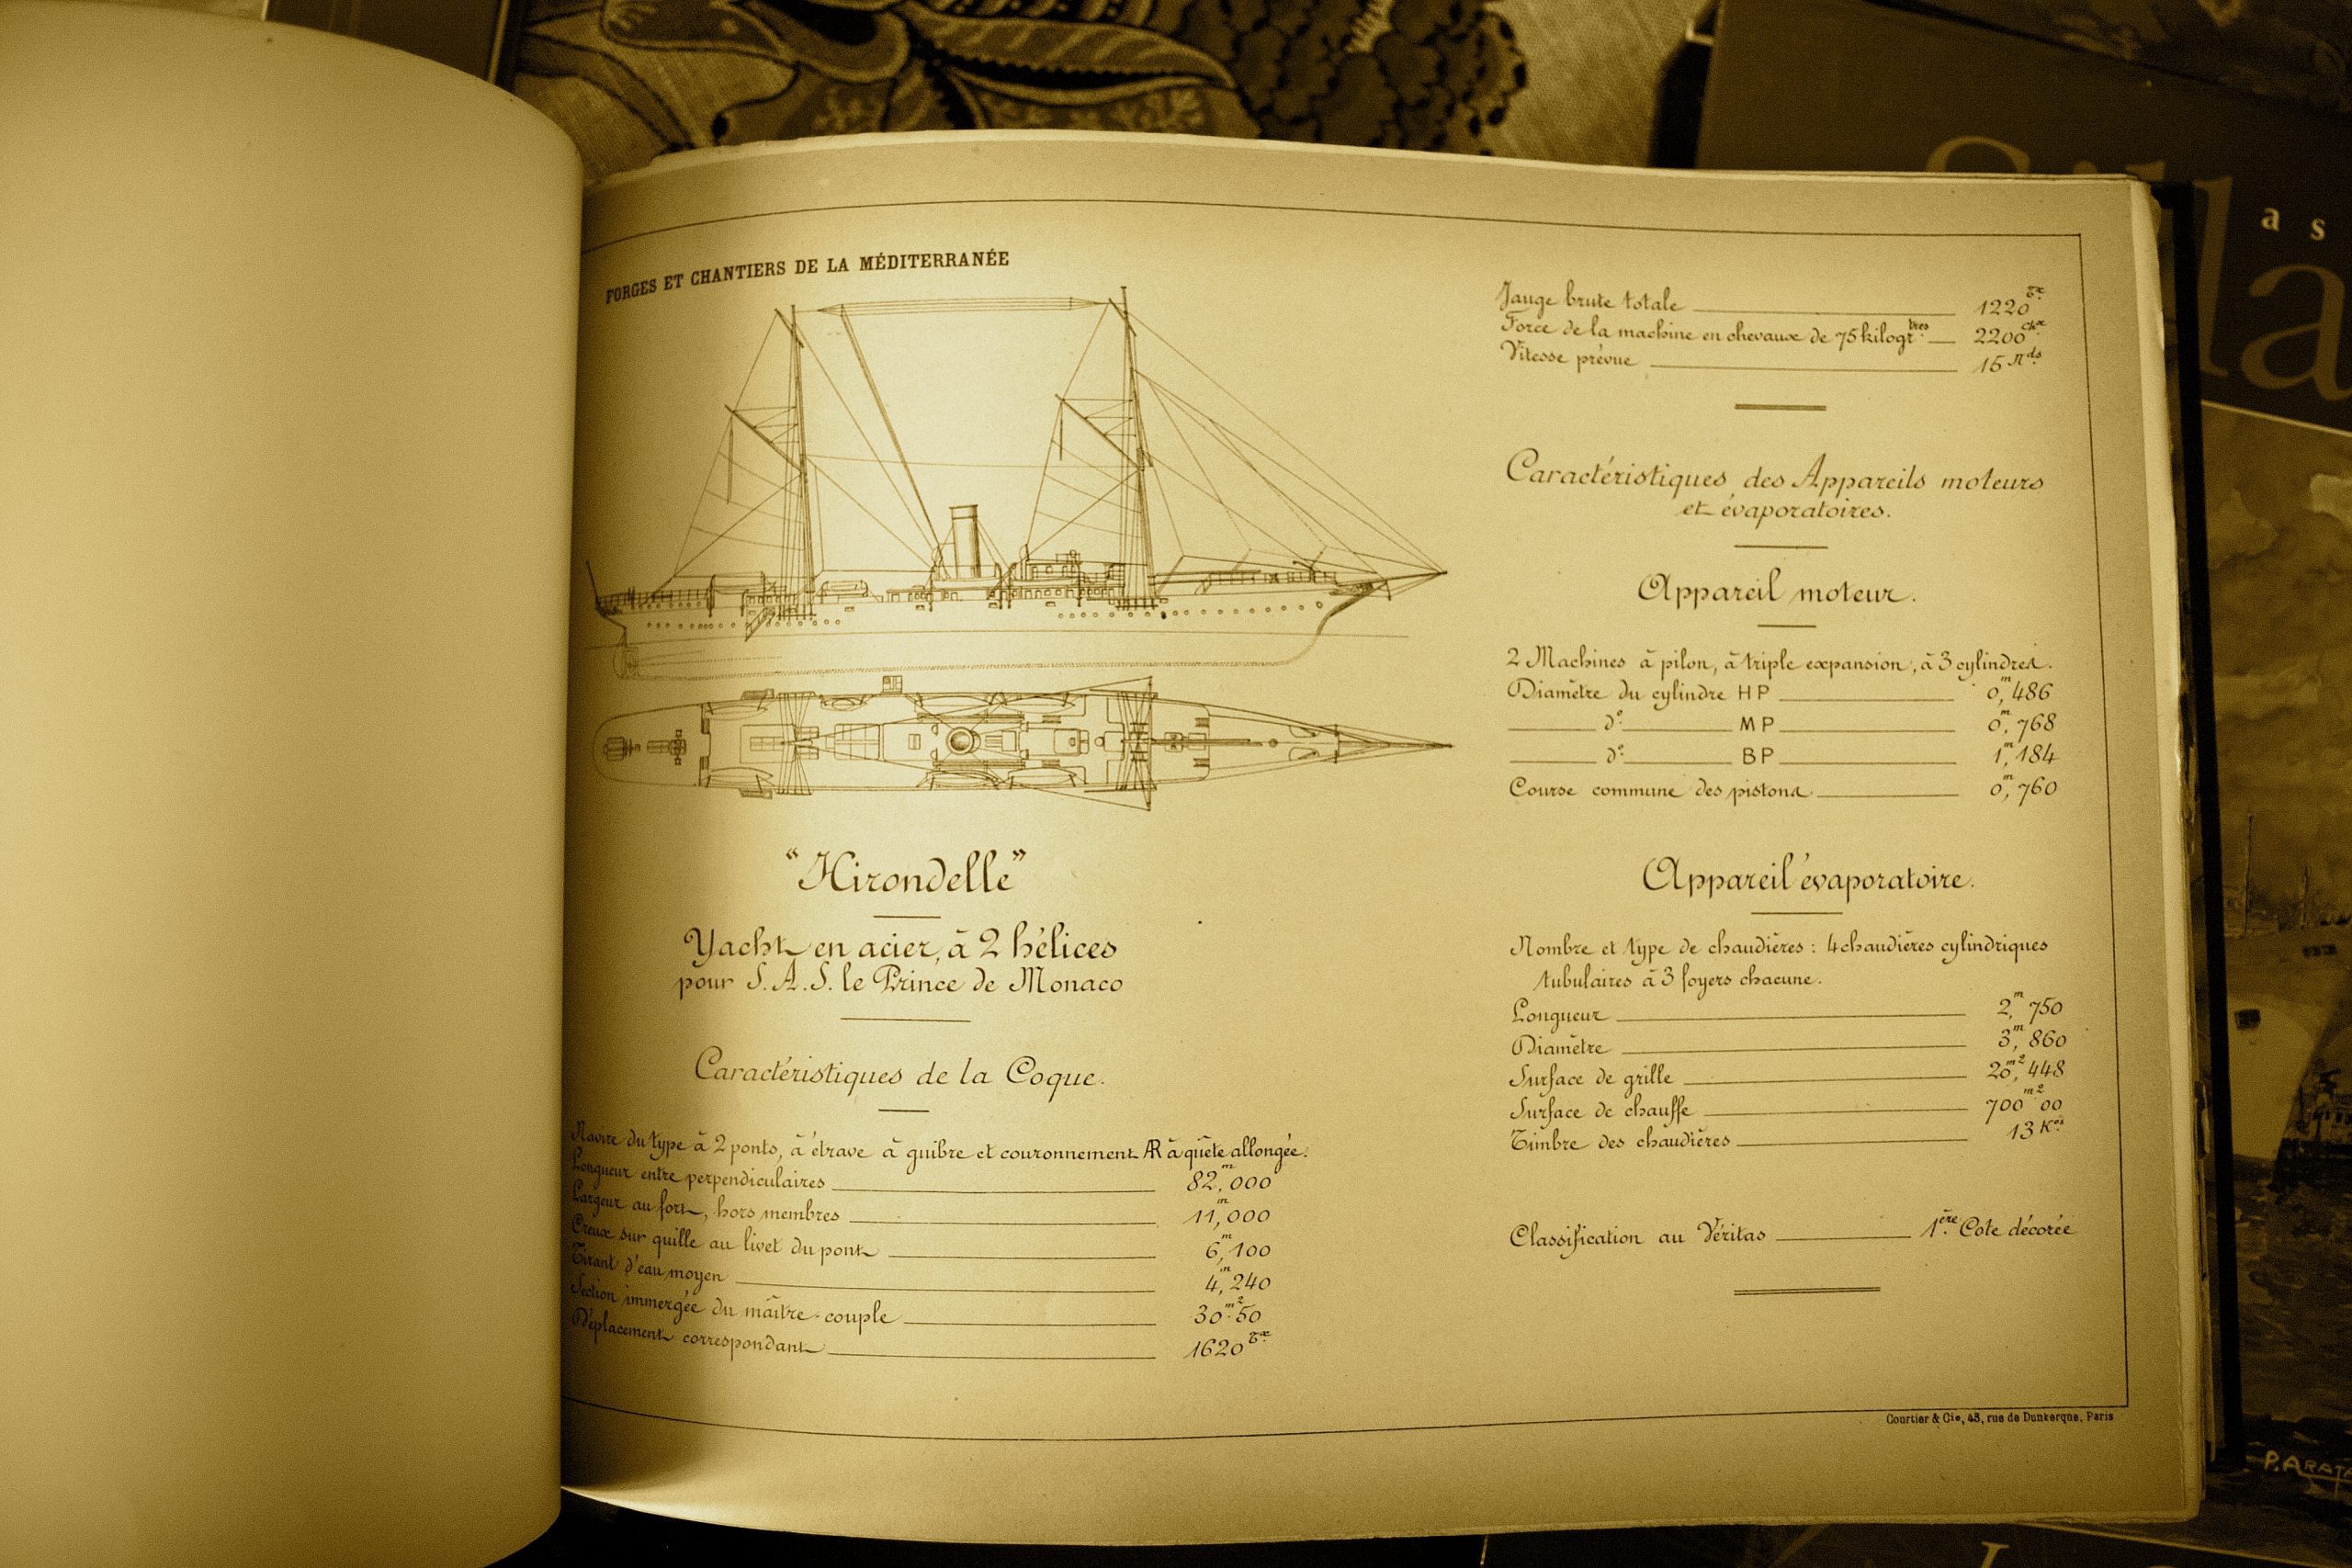 FORGES ET CHANTIERS DE LA MÉDITERRANÉE
"Hirondelle"
Yacht en acier, à 2 hélices
pour S.A.S. le Prince de Monaco
Caractéristiques de la Coque.
Navire du type à 2 ponts, à étrave à guibre et couronnement AR à quête allongée.
Longueur entre perpendiculaires 82,m000
Largeur au fort, hors membres 11,m000
Creux sur quille au livet du pont 6,m100
Tirant d'eau moyen 4,m240
Section immergée du maître-couple 30m2.50
Déplacement correspondant 1620Tx
Jauge brute totale 1220Tx
Force de la machine en chevaux de 75 kilogrtres 2200chx
Vitesse prévue 15 Nds
Caractéristiques des Appareils moteurs
et évaporatoires.
Appareil moteur.
2 Machines à pilon, à triple expansion, à 3 cylindres.
Diamètre du cylindre HP 0,m486
do MP 0,m768
do BP 1,m184
Course commune des pistons 0,m760
Appareil évaporatoire.
Nombre et type de chaudières : 4 chaudières cylindriques
tubulaires à 3 foyers chacune.
Longueur 2,m750
Diamètre 3,m860
Surface de grille 20,m2448
Surface de chauffe 700m200
Timbre des chaudières 13 Kos
Classification au Véritas 1ère Cote décorée
Courtier & Cie, 43, rue de Dunkerque, Paris
as
la
P. ARATA